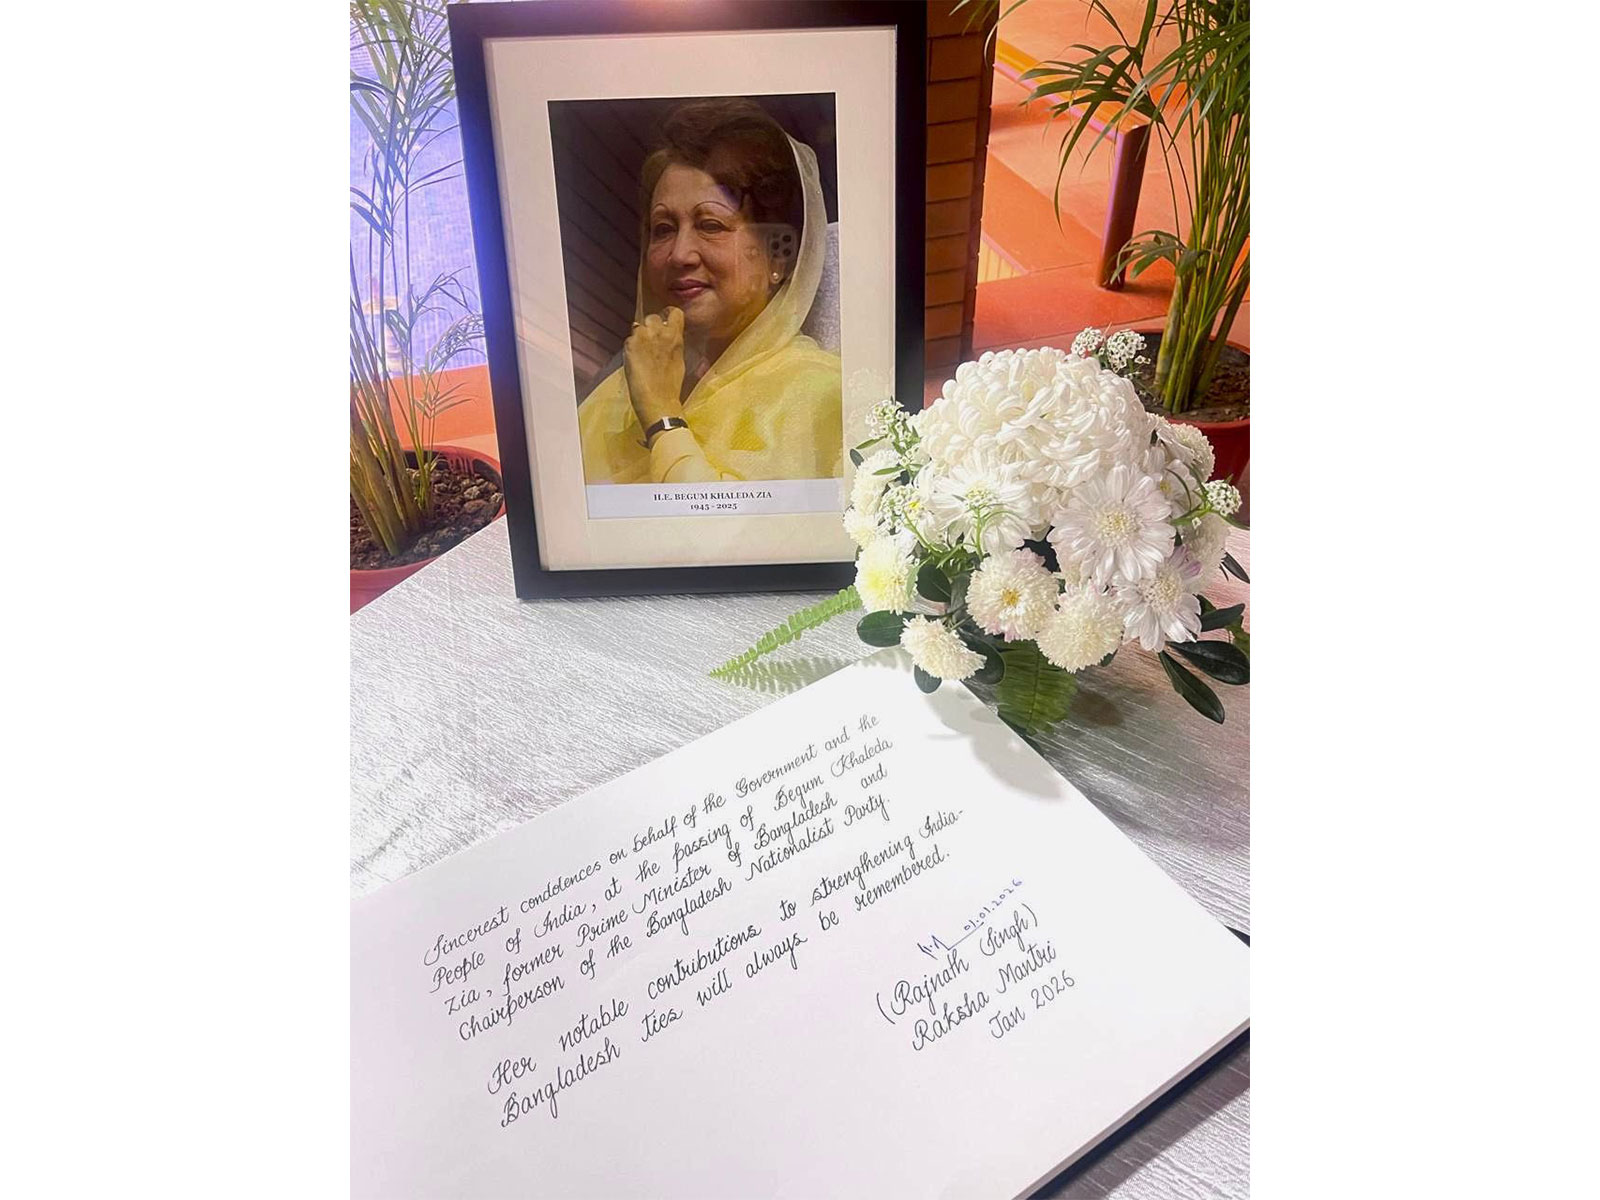 H.E. BEGUM KHALEDA ZIA
1945 - 2025
Sincerest condolences on behalf of the Government and the
People of India, at the passing of Begum Khaleda
Zia, former Prime Minister of Bangladesh and
Chairperson of the Bangladesh Nationalist Party.
Her notable contributions to strengthening India-
Bangladesh ties will always be remembered.
01.01.2026
(Rajnath Singh)
Raksha Mantri
Jan 2026